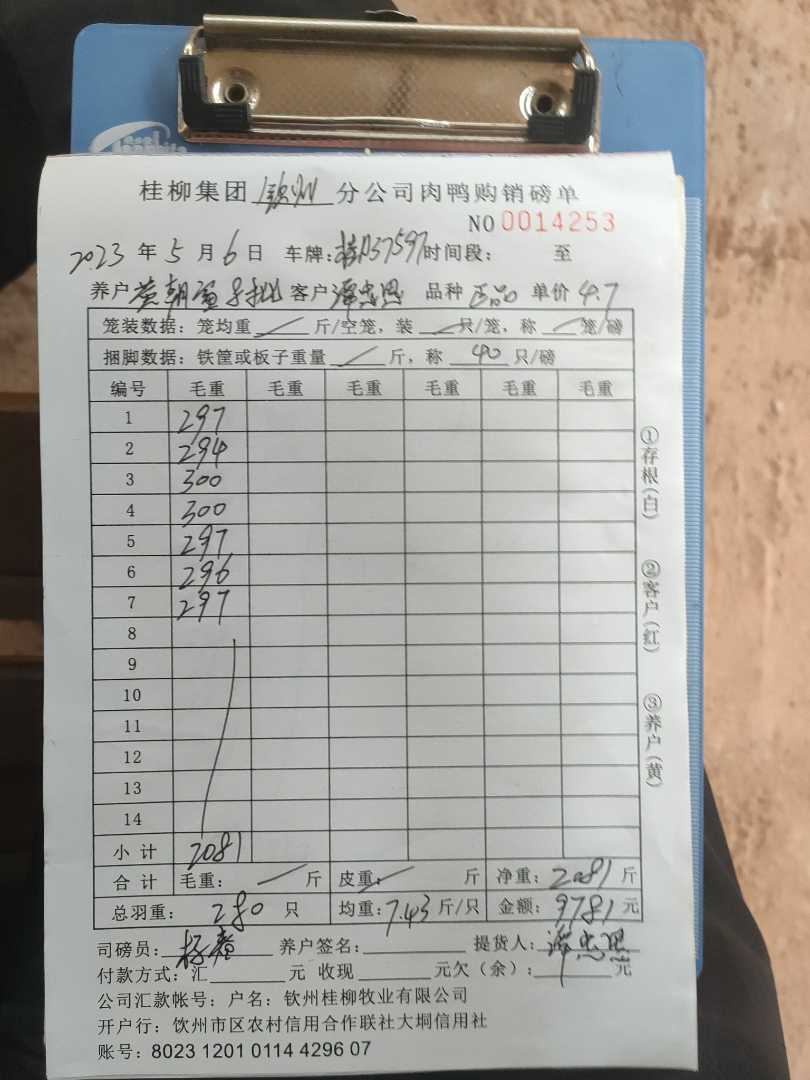 桂柳集团 钦州 分公司肉鸭购销磅单
NO 0014253
2023 年 5 月 6 日 车牌: 桂D37597 时间段: 至
养户 黄朝 客户 谭忠恩 品种 正品 单价 4.7
笼装数据: 笼均重 / 斤/空笼, 装 / 只/笼, 称 / 笼/磅
捆脚数据: 铁筐或板子重量 / 斤, 称 40 只/磅
编号 毛重 毛重 毛重 毛重 毛重 毛重
1 297
2 294
3 300
4 300
5 297
6 296
7 297
8
9
10
11
12
13
14
小 计 2081
合 计 毛重: / 斤 皮重: / 斤 净重: 2081 斤
总羽重: 280 只 均重: 7.43 斤/只 金额: 9781 元
司磅员: 养户签名: 提货人: 谭忠恩
付款方式: 汇 元 收现 元欠（余）: 元
公司汇款帐号: 户名: 钦州桂柳牧业有限公司
开户行: 饮州市区农村信用合作联社大垌信用社
账号: 8023 1201 0114 4296 07
①存根（白）
②客户（红）
③养户（黄）